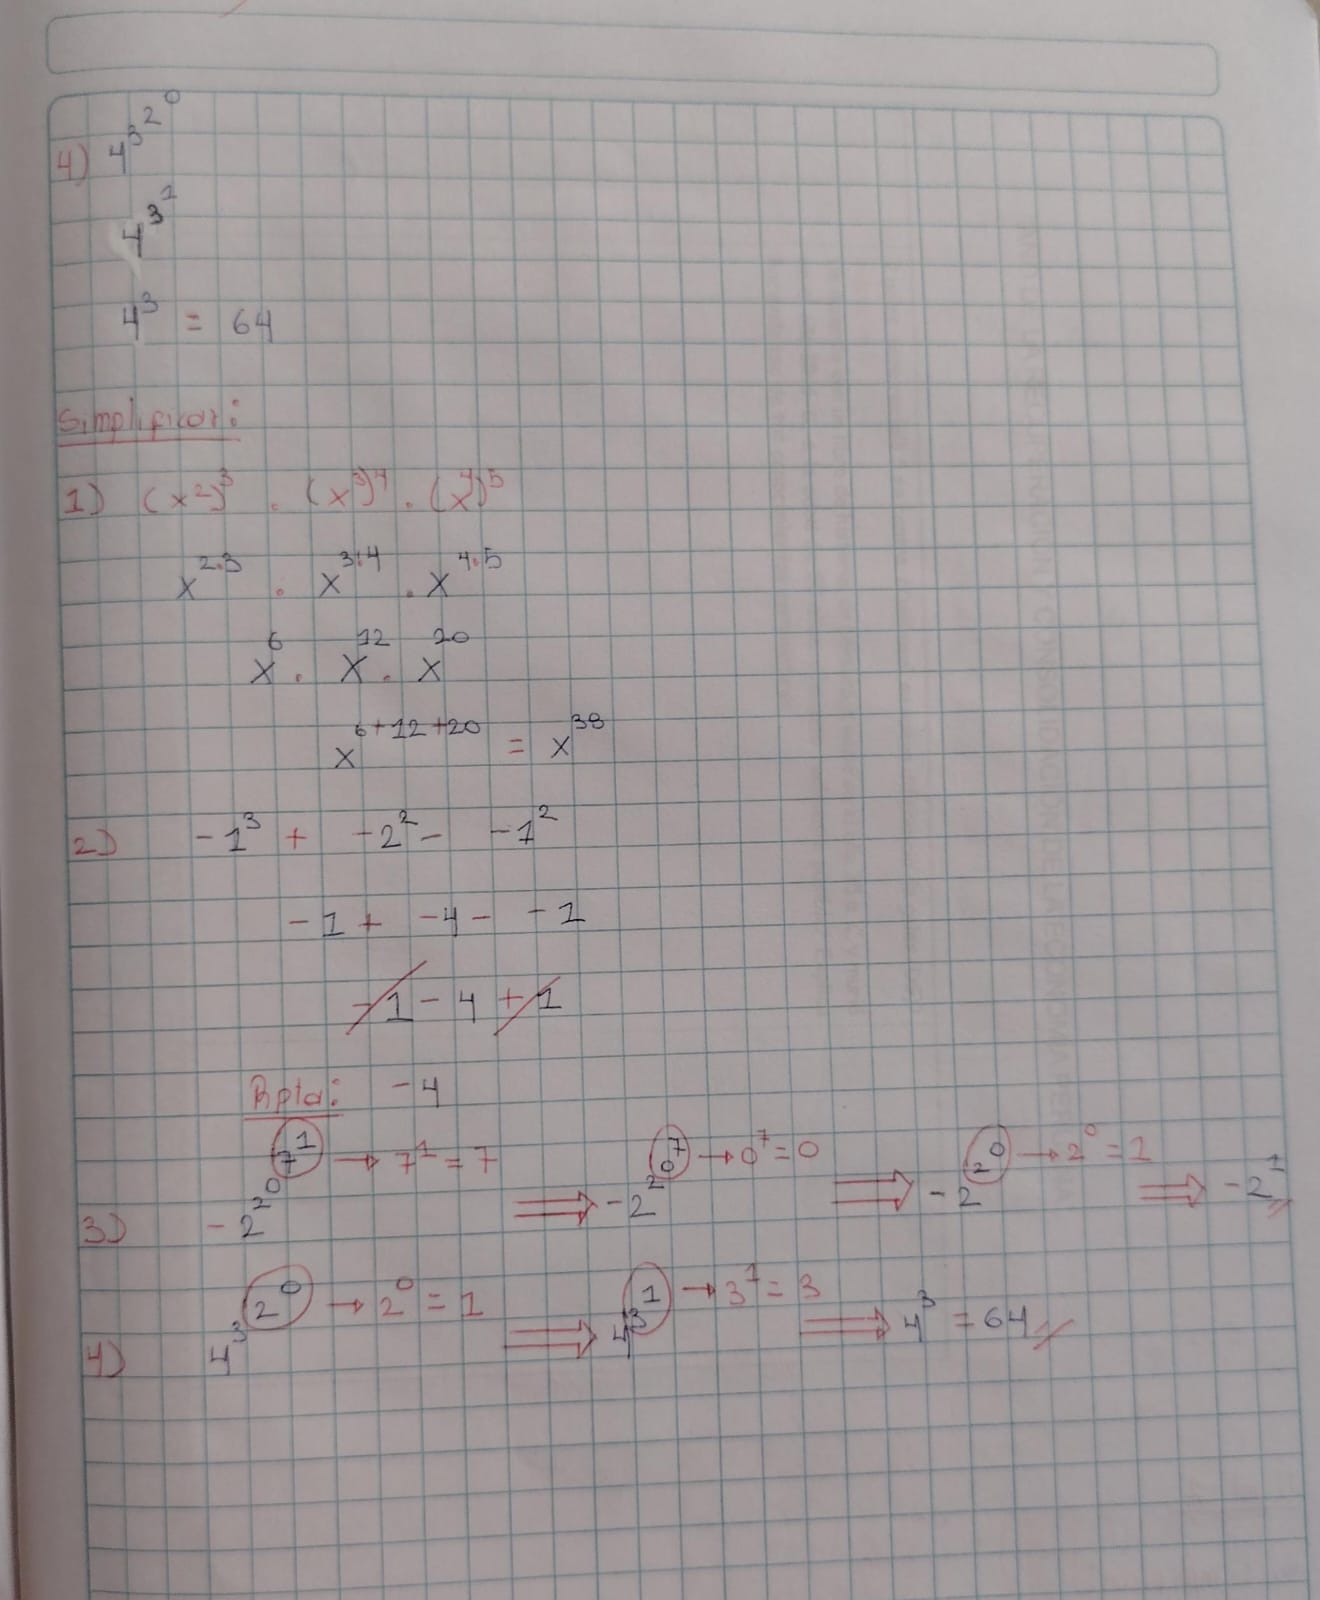 4) 4^3^2^0
4^3^1
4^3 = 64
Simplificar:
1) (x^2)^3 . (x^3)^4 . (x^4)^5
x^2.3 . x^3.4 . x^4.5
x^6 . x^12 . x^20
x^6+12+20 = x^38
2) -1^3 + -2^2 - -1^2
-1 + -4 - -1
-1 - 4 + 1
Rpta: -4
3) -2^2^0^7^1 → 7^1 = 7 ⇒ -2^2^0^7 → 0^7 = 0 ⇒ -2^2^0 → 2^0 = 1 ⇒ -2^1
4) 4^3^2^0 → 2^0 = 1 ⇒ 4^3^1 → 3^1 = 3 ⇒ 4^3 = 64